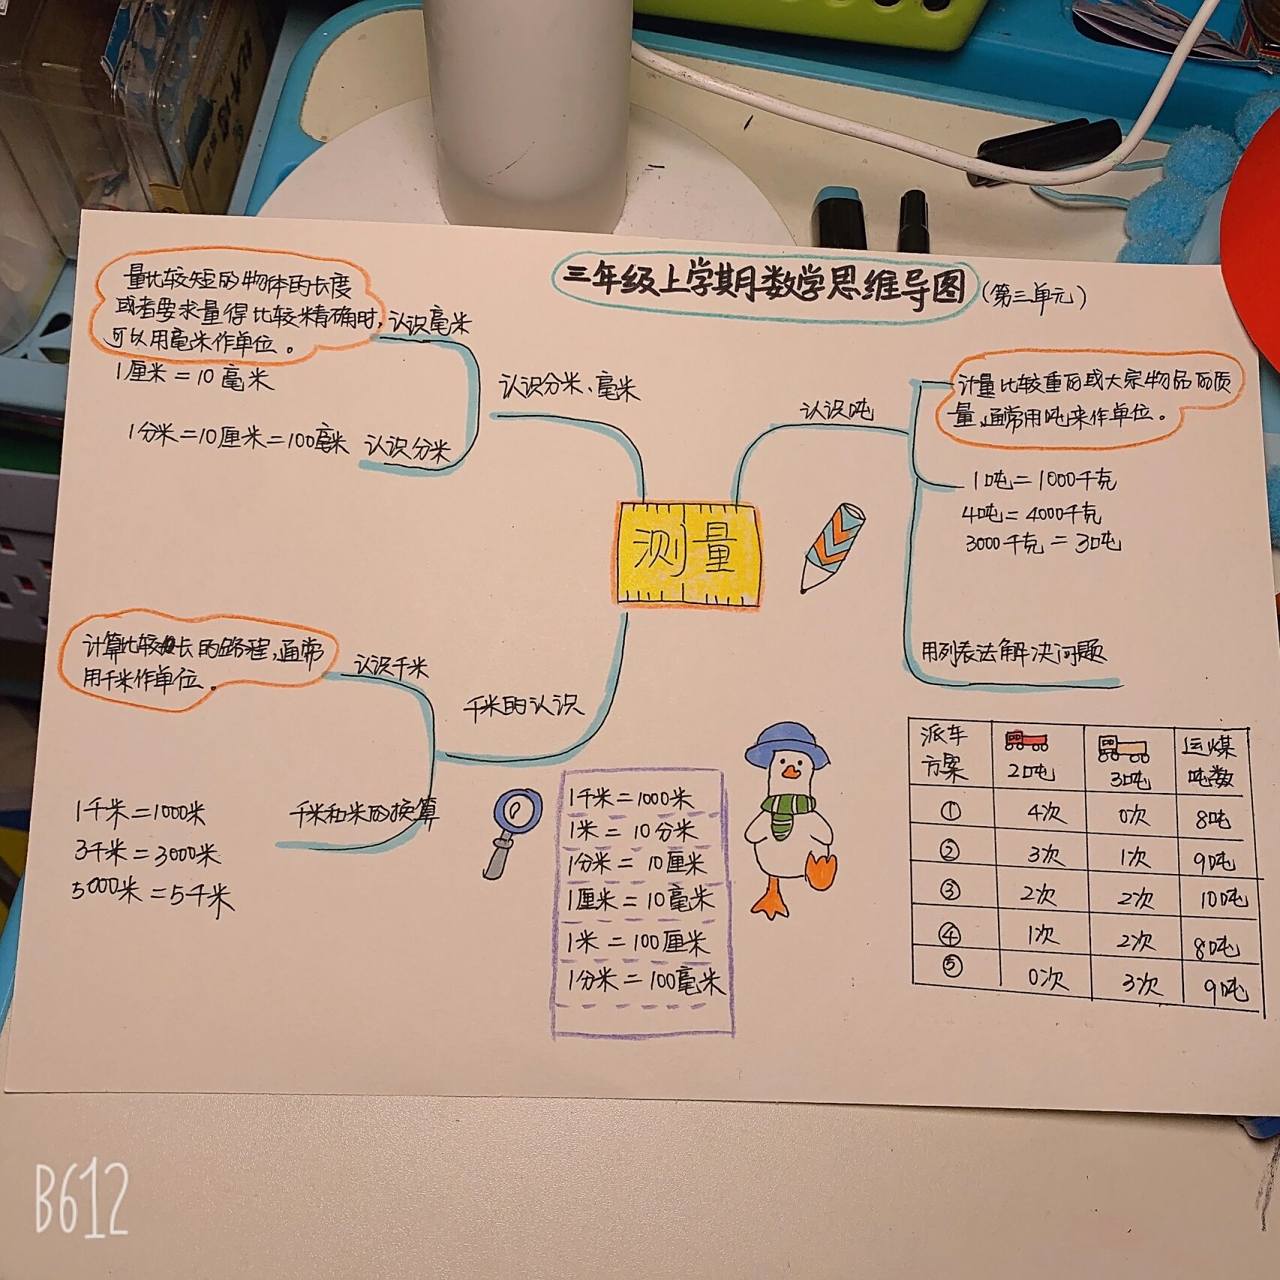 三年级上学期数学思维导图(第三单元)
量比较短的物体的长度
或者要求量得比较精确时,
可以用毫米作单位。
认识毫米
1厘米=10毫米
1分米=10厘米=100毫米
认识分米
认识分米、毫米
认识吨
计量比较重的或大宗物品的质
量,通常用吨来作单位。
1吨=1000千克
4吨=4000千克
3000千克=3吨
测量
用列表法解决问题
计算比较长的路程,通常
用千米作单位。
认识千米
千米的认识
千米和米的换算
1千米=1000米
3千米=3000米
5000米=5千米
1千米=1000米
1米=10分米
1分米=10厘米
1厘米=10毫米
1米=100厘米
1分米=100毫米
派车 运煤
方案 2吨 3吨 吨数
① 4次 0次 8吨
② 3次 1次 9吨
③ 2次 2次 10吨
④ 1次 2次 8吨
⑤ 0次 3次 9吨
B612